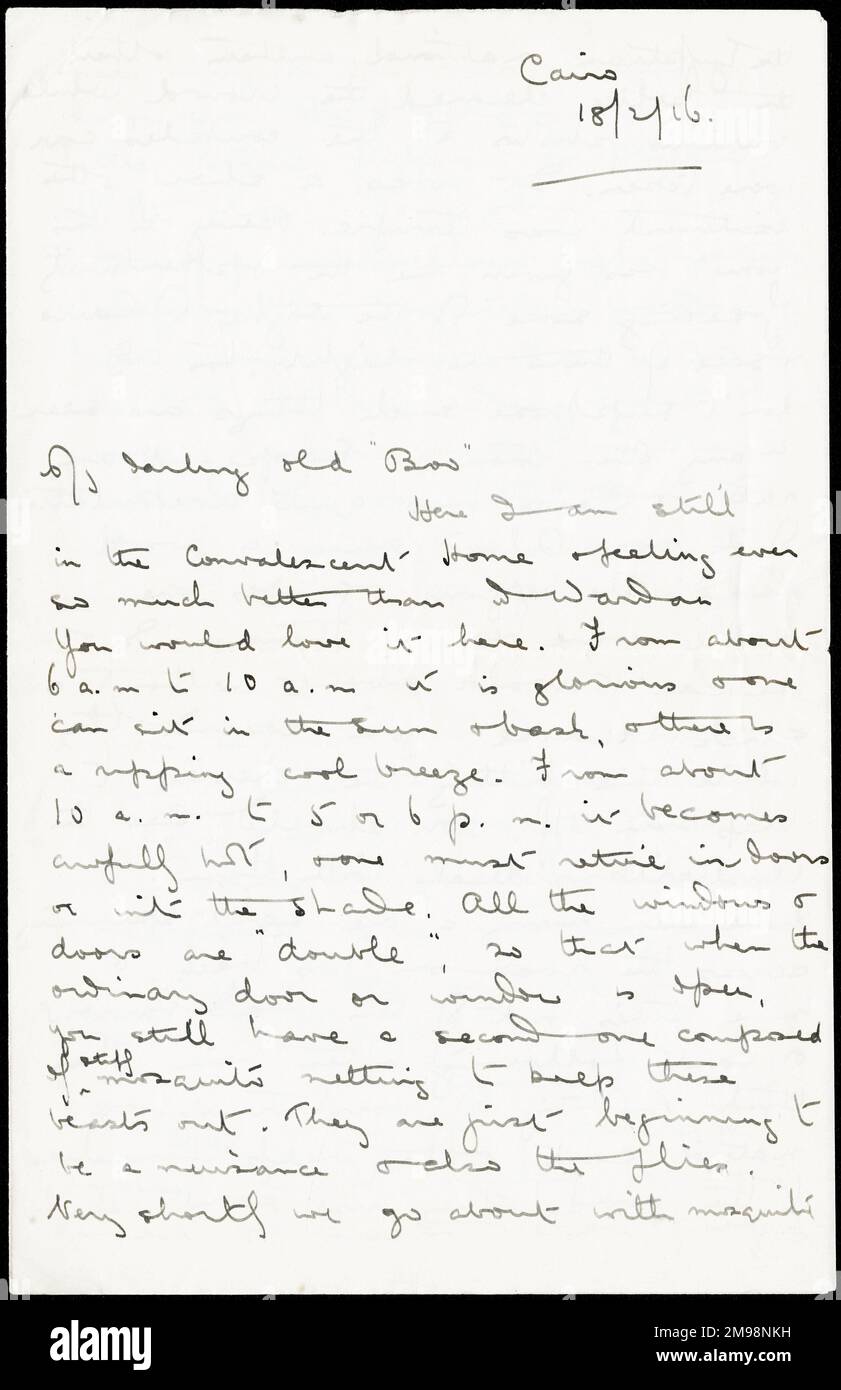 Cairo
18/2/16.
My darling old "Bow"
Here I am still
in the Convalescent Home & feeling ever
so much better than at Wardan
You would love it here. From about
6 a.m to 10 a.m it is glorious & one
can sit in the sun & bask, & there is
a ripping cool breeze. From about
10 a.m. to 5 or 6 p.m. it becomes
awfully hot, & one must retire indoors
or into the shade. All the windows &
doors are "double", so that when the
ordinary door or window is open,
you still have a second one composed
of stiff mosquito netting to keep these
beasts out. They are just beginning to
be a nuisance & also the flies.
Very shortly we go about with mosquito
alamy
alamy
alamy
alamy
Image ID: 2M98NKH
www.alamy.com